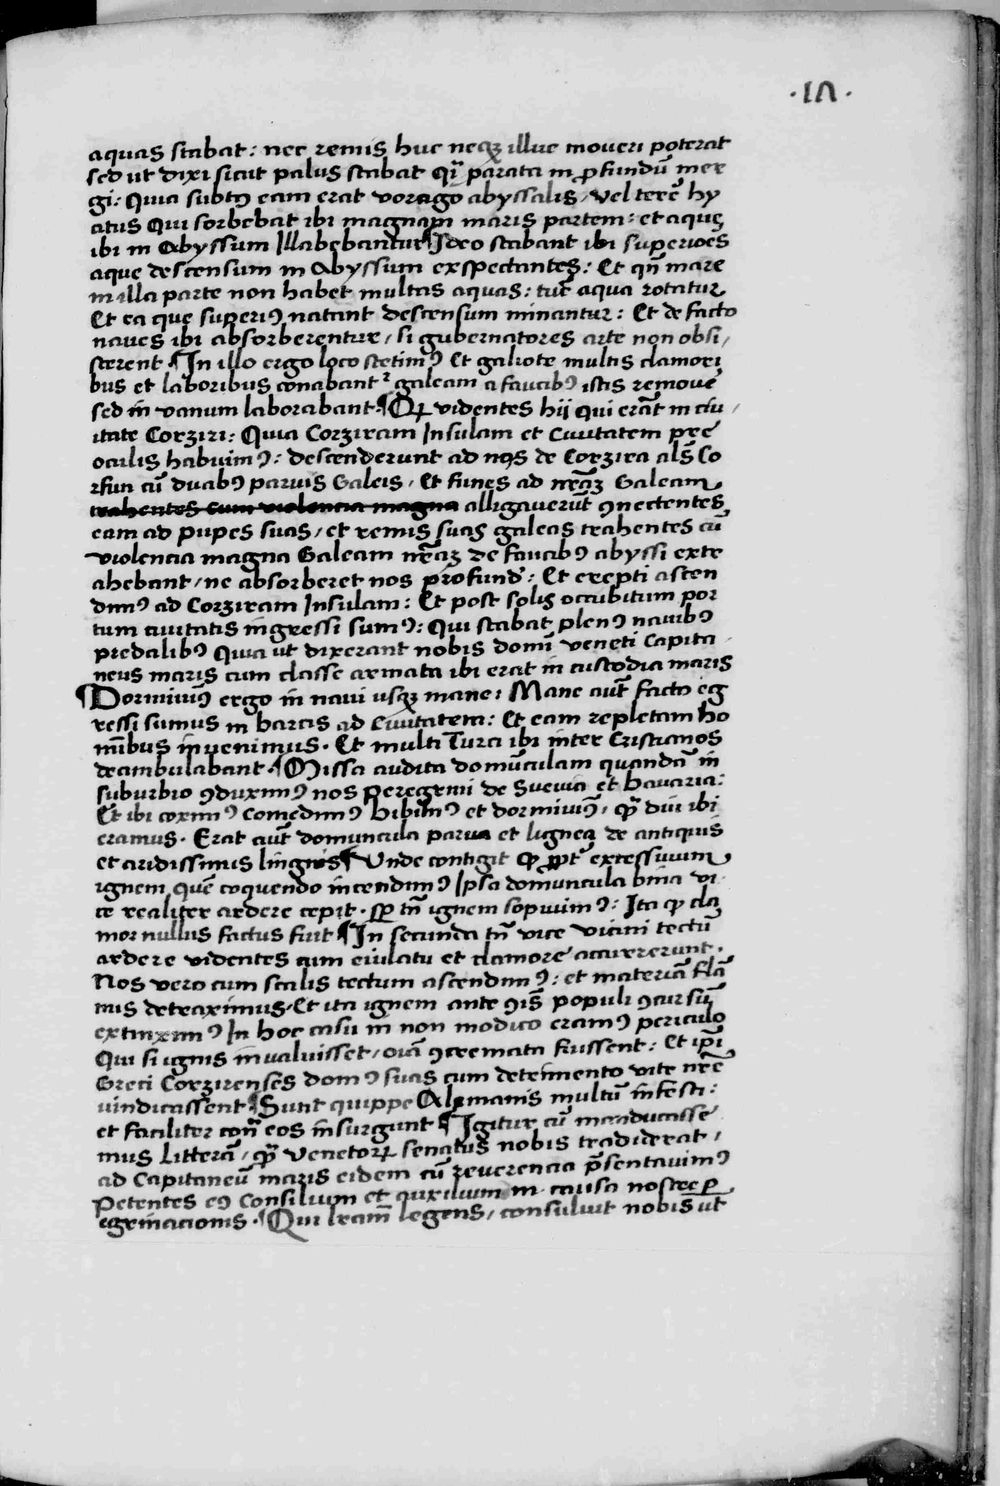 ·17·
aquas stabat: nec remis huc neqꝫ illuc moueri poterat
sed ut dixi sicut palus stabat qͣi parata in ꝓfundū mer
gi: Quia subtꝰ eam erat vorago abyssalis, vel terrē hy
atus Qui sorbebat ibi magnam maris partem: et aquę
ibi in Abyssum Illabebantur ¶ Ideo stabant ibi superiões
aque descensum in Abyssum exspectantes: Et qn̄ mare
in illa parte non habet multas aquas: tūc aqua rotatur
Et ea que superiꝰ natant descensum minantur: Et de facto
naues ibi absorberentur, si gubernatores arte non obsi,
sterent ¶ In illo ergo loco stetimꝰ Et galiote multis clamori
bus et laboribus conabantʳ galeam a faucibꝰ istis remouē
sed in vanum laborabant ¶ Qꝛ videntes hij qui erāt in ciu,
itate Corziri: Quia Corziram Insulam et Ciuitatem pre
oculis habuimꝰ: descenderunt ad nos de Corzira als̄ Co
rfun cū duabꝰ paruis Galeis, Et funes ad nr̄aꝫ Galeam
trahentes cum violencia magna alligauerūt ꝯnectentes
eam ad pupes suas, et remis suas galeas trahentes cū
violencia magna Galeam nr̄aꝫ de faucibꝰ abyssi extr
ahebant, ne absorberet nos profund': Et erepti ascen
dimꝰ ad Corziram Insulam: Et post solis occubitum por
tum ciuitatis ingressi sumꝰ: Qui stabat plenꝰ nauibꝰ
predalibꝰ Quia ut dixerant nobis domī veneti Capita,
neus maris cum classe armata ibi erat in custodia maris
¶ Dormiuimꝰ ergo in naui usqꝫ mane: Mane aūt facto eg
ressi sumus in barcis ad Ciuitatem: Et eam repletam ho
mībus inuenimus. Et multi Turci ibi inter Cristianos
deambulabant ¶ Missa audita domūculam quandā in
suburbio ꝯduximꝰ nos peregrini de Sueuia et Bauaria:
Et ibi coximꝰ Comedimꝰ bibimꝰ et dormiuimꝰ, qͣ diu ibi
eramus. Erat aūt domuncula parua et lignea de antiquis
et aridissimis lingnis ¶ Unde contigit ꝙ ꝓpt' excessiuum
ignem quē coquendo incendimꝰ Ipsa domuncula bina vi
ce realiter ardere cepit. sꝑ tn̄ ignem sopiuimꝰ: Ita ꝙ cla
mor nullus factus fuit ¶ In secunda tn̄ vice vicini tectū
ardere videntes cum eiulatu et clamore accurrerunt.
Nos vero cum scalis tectum ascendimꝰ: et materiā flā
mis detraximus. Et ita ignem ante ꝯis̄ populi ꝯcursū
extinximꝰ In hoc casu in non modico eramꝰ periculo
Qui si ignis inualuisset, oīa ꝯcremata fuissent: Et ip̄i
Greci Corzirenses domꝰ suas cum detrimento vite nr̄e
uindicassent ¶ Sunt quippe Alemanis multū infesti:
et faciliter cont̄ eos insurgunt ¶ Igitur cū manducasse
mus litterā, qͣ Venetorꝝ senatus nobis tradiderat,
ad Capitaneū maris eidem cū reuerencia p̄sentauimꝰ
Petentes eꝰ Consilium et auxilium in causa nostre ꝑ
egrinacionis. ¶ Qui lr̄am legens, consuluit nobis ut